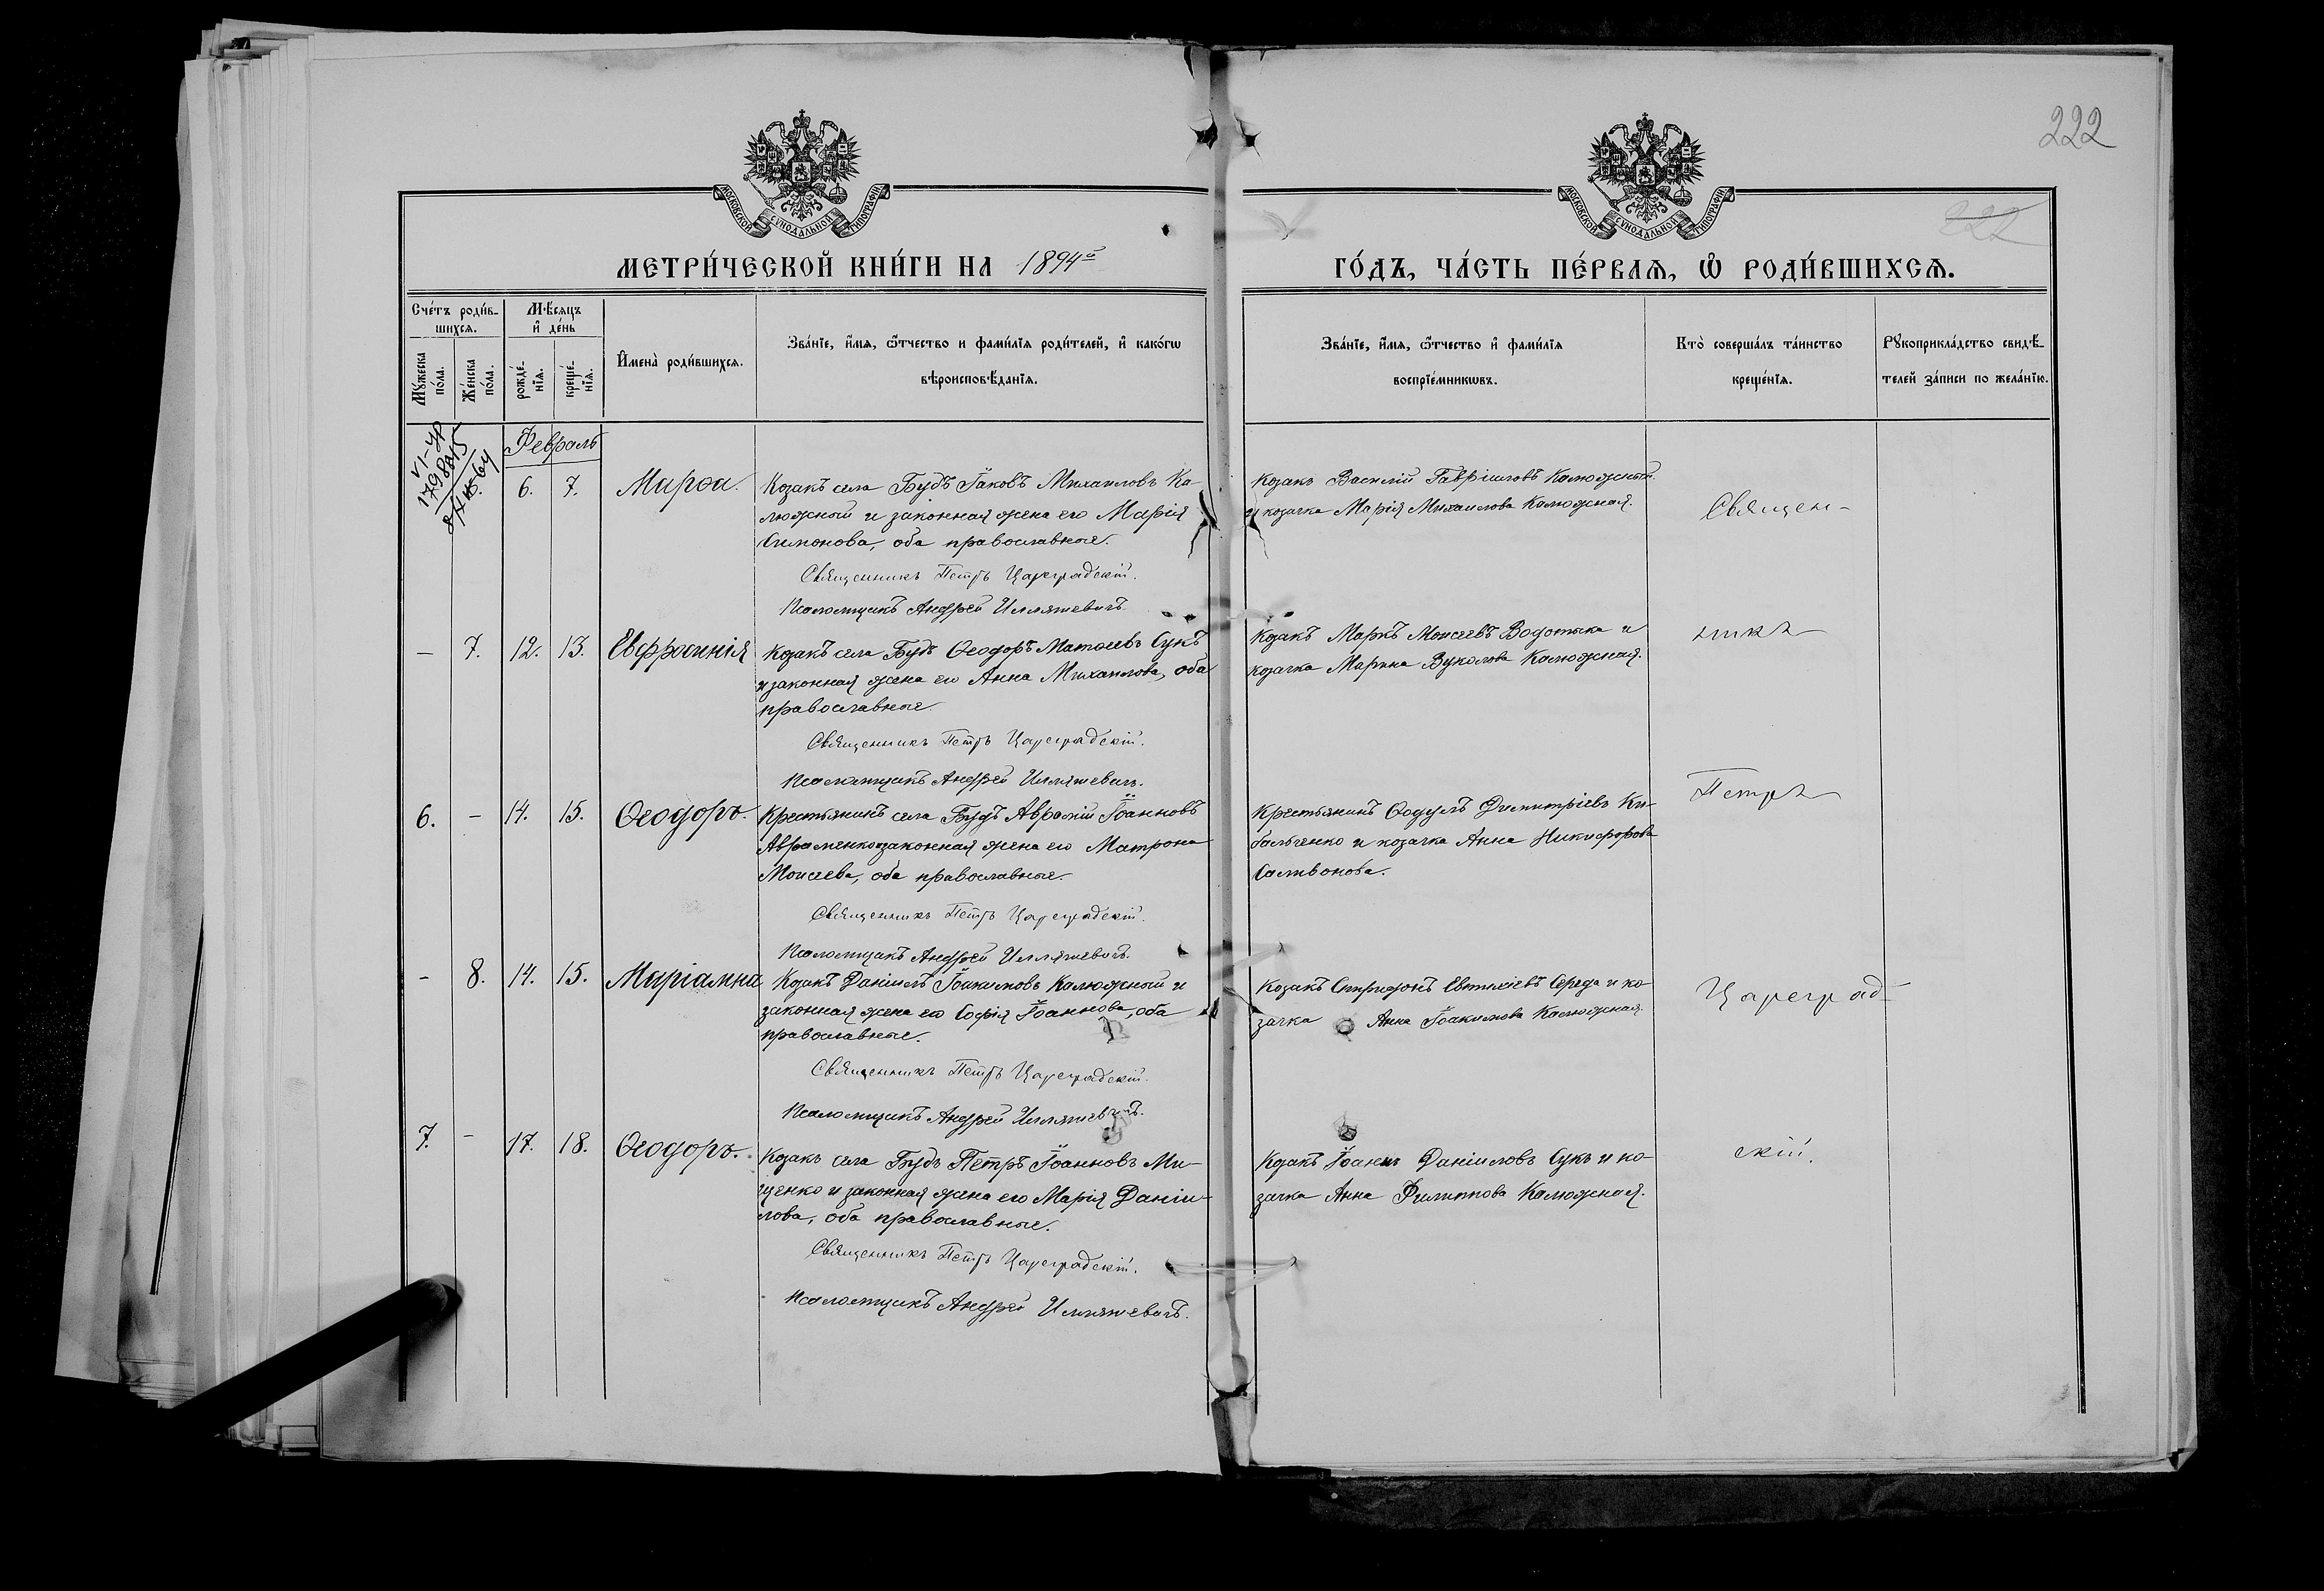 222
МОСКОВСКОЙ СУНОДАЛЬНОЙ ТИПОГРАФІИ
МОСКОВСКОЙ СУНОДАЛЬНОЙ ТИПОГРАФІИ
222
МЕТРИ́ЧЕСКОЙ КНИ́ГИ НА 1894й
ГО́ДЪ, ЧА́СТЬ ПЕ́РВАѦ, Ѽ РОДИ́ВШИХСѦ.
Сче́тъ роди́в-
шихсѧ.
Мꙋ́жеска
по́ла.
Же́нска
по́ла.
Мѣ́сѧцъ
и҆ де́нь
рожде́-
нїѧ.
креще́-
нїѧ.
И҆мена̀ роди́вшихсѧ.
Зва́нїе, и҆́мѧ, ѻ҆́тчество и фами́лїѧ роди́телей, и҆ како́гѡ
вѣроисповѣ́данїѧ.
Зва́нїе, и҆́мѧ, ѻ҆́тчество и҆ фами́лїѧ
воспрїе́мникѡвъ.
Кто̀ соверша́лъ та́инство
креще́нїѧ.
Рꙋкоприкла́дство свидѣ́-
телей за́писи по жела́нїю.
Февраль
6. 7. Марѳа. Козакъ села Будъ Іаковъ Михаиловъ Ка-
люжный и законная жена его Марія
Симонова, оба православные.
Священникъ Петръ Цареградскій.
Псаломщикъ Андрей Илляшевичъ.
Козакъ Василій Гавріиловъ Калюжный
и козачка Марія Михаилова Калюжная.
Священ-
— 7. 12. 13. Евфросинія Козакъ села Будъ Ѳеодоръ Матѳеевъ Сукъ
и законная жена его Анна Михаилова, оба
православные.
Священникъ Петръ Цареградскій.
Псаломщикъ Андрей Илляшевичъ.
Козакъ Маркъ Моисеевъ Водотыка и
козачка Марина Вуколова Калюжная.
никъ
6. — 14. 15. Ѳеодоръ. Крестьянинъ села Будъ Аврамій Іоанновъ
Авраменко законная жена его Матрона
Моисеева, оба православные.
Священникъ Петръ Цареградскій.
Псаломщикъ Андрей Илляшевичъ.
Крестьянинъ Ѳеодулъ Димитріевъ Ки-
бальченко и козачка Анна Никифорова
Саливонова.
Петръ
— 8. 14. 15. Маріамна Козакъ Даніилъ Іоакимовъ Калюжный и
законная жена его Софія Іоаннова, оба
православные.
Священникъ Петръ Цареградскій.
Псаломщикъ Андрей Илляшевичъ.
Козакъ Спиридонъ Евтихіевъ Середа и ко-
зачка Анна Іоакимова Калюжная.
Цареград-
7. — 17. 18. Ѳеодоръ. Козакъ села Будъ Петръ Іоанновъ Ми-
щенко и законная жена его Марія Даніи-
лова, оба православные.
Священникъ Петръ Цареградскій.
Псаломщикъ Андрей Илляшевичъ.
Козакъ Іоаннъ Даніиловъ Сукъ и ко-
зачка Анна Филиппова Калюжная.
скій.